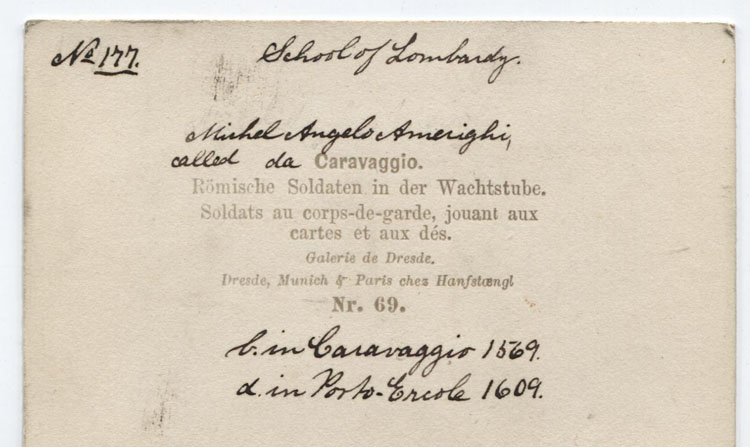 No 177.
School of Lombardy.
Michel Angelo Amerighi,
called da Caravaggio.
Römische Soldaten in der Wachtstube.
Soldats au corps-de-garde, jouant aux
cartes et aux dés.
Galerie de Dresde.
Dresde, Munich & Paris chez Hanfstængl
Nr. 69.
b. in Caravaggio 1569.
d. in Porto-Ercole 1609.